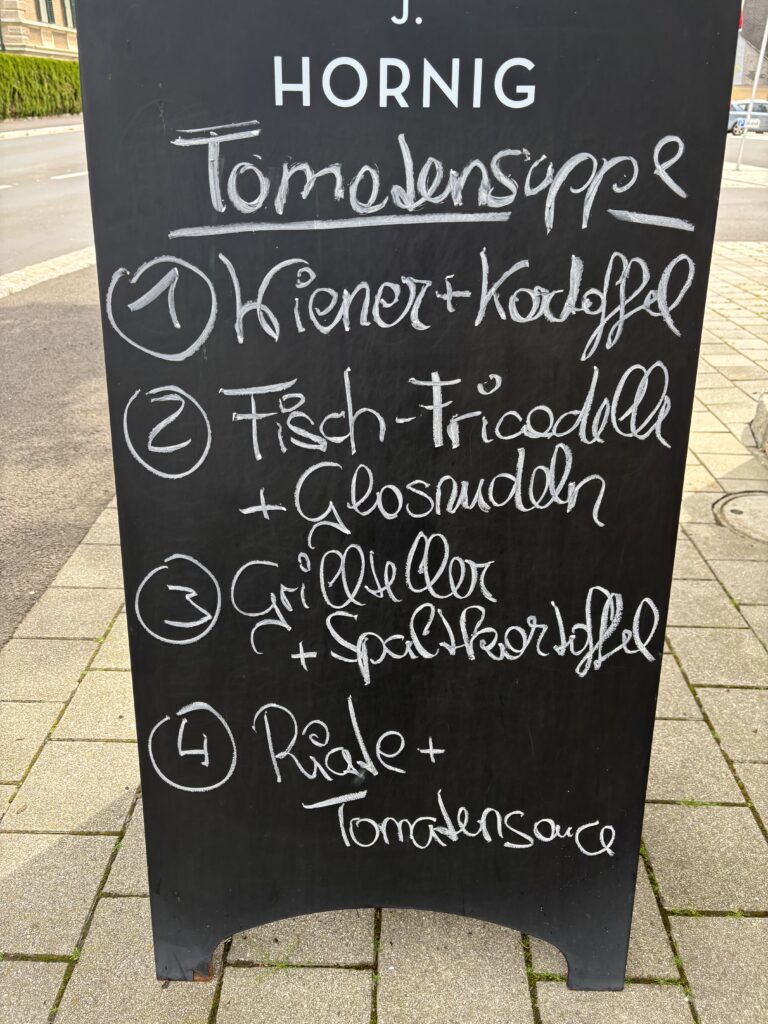 J.
HORNIG
Tomatensuppe
1 Wiener + Kartoffel
2 Fisch-Fricadelle
+ Glasnudeln
3 Grillteller
+ Spaltkartoffel
4 Riate +
Tomatensauce